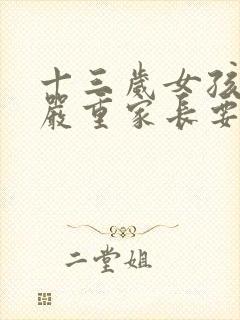 十三歲女孩
嚴重家長要
二堂姐